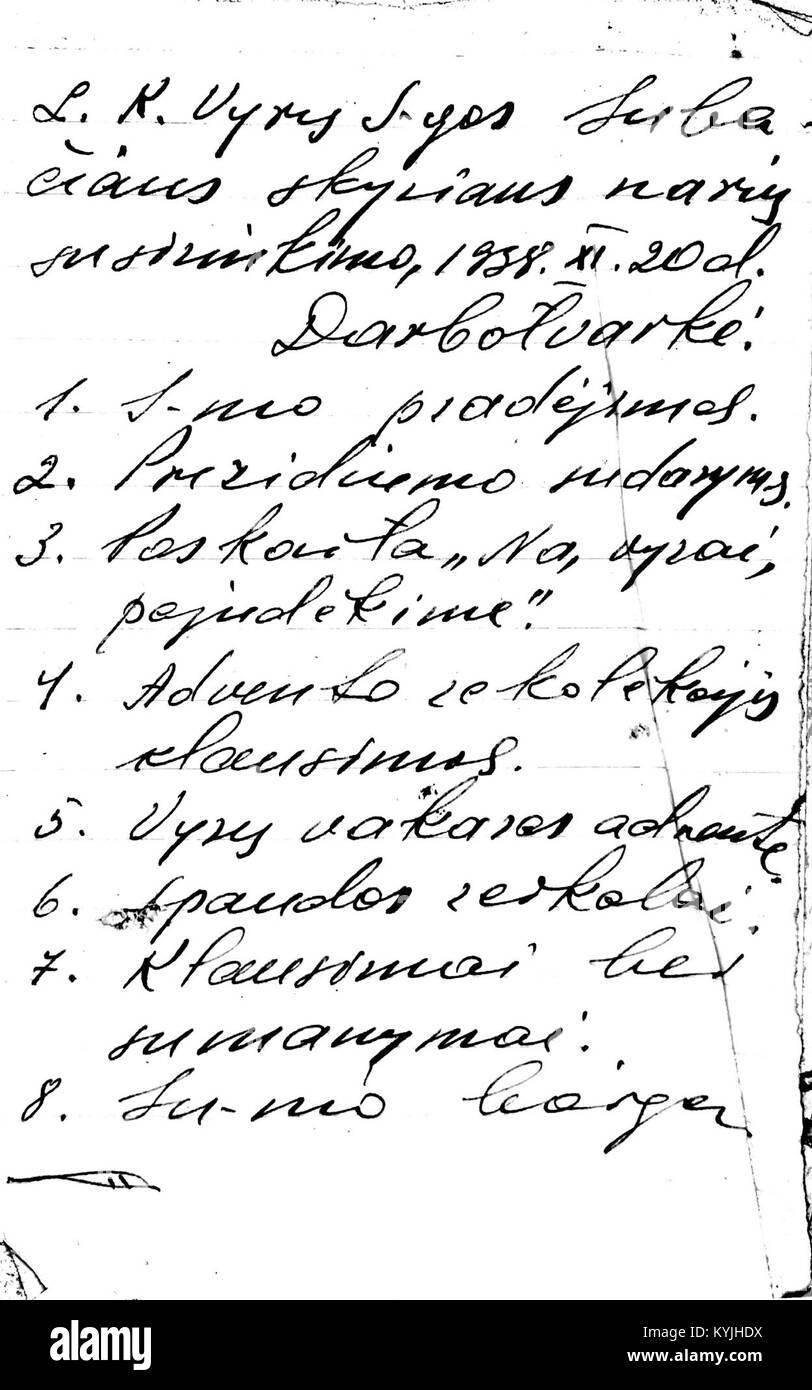 L. K. Vyrų S-gos Suba-
čiaus skyriaus narių
susirinkimo, 1938. XI. 20 d.
Darbotvarkė:
1. S-mo pradėjimas.
2. Prezidiumo sudarymas.
3. Paskaita „Na, vyrai,
pajudėkime".
4. Advento rekolekcijų
klausimas.
5. Vyrų vakaras advente.
6. Spaudos reikalai.
7. Klausimai bei
sumanymai.
8. Su-mo baiga
alamy
Image ID: KYJHDX
www.alamy.com